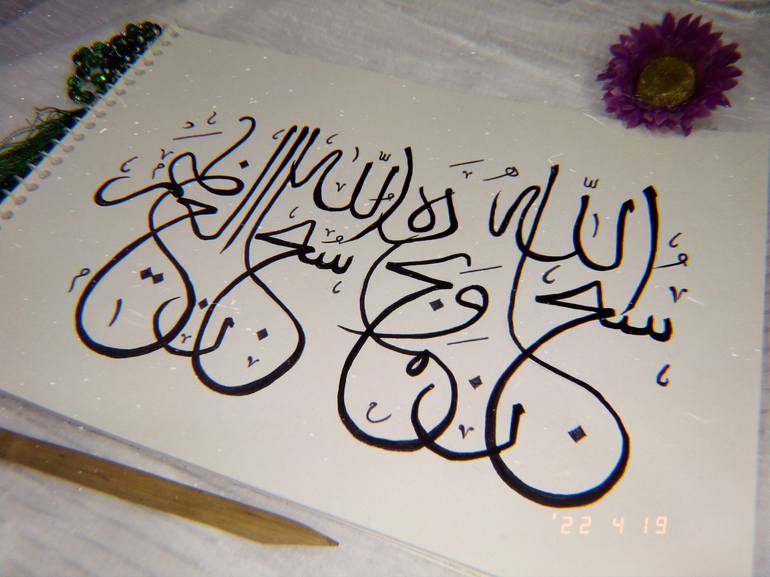 سبحان الله وبحمده
سبحان الله العظيم
'22 4 19